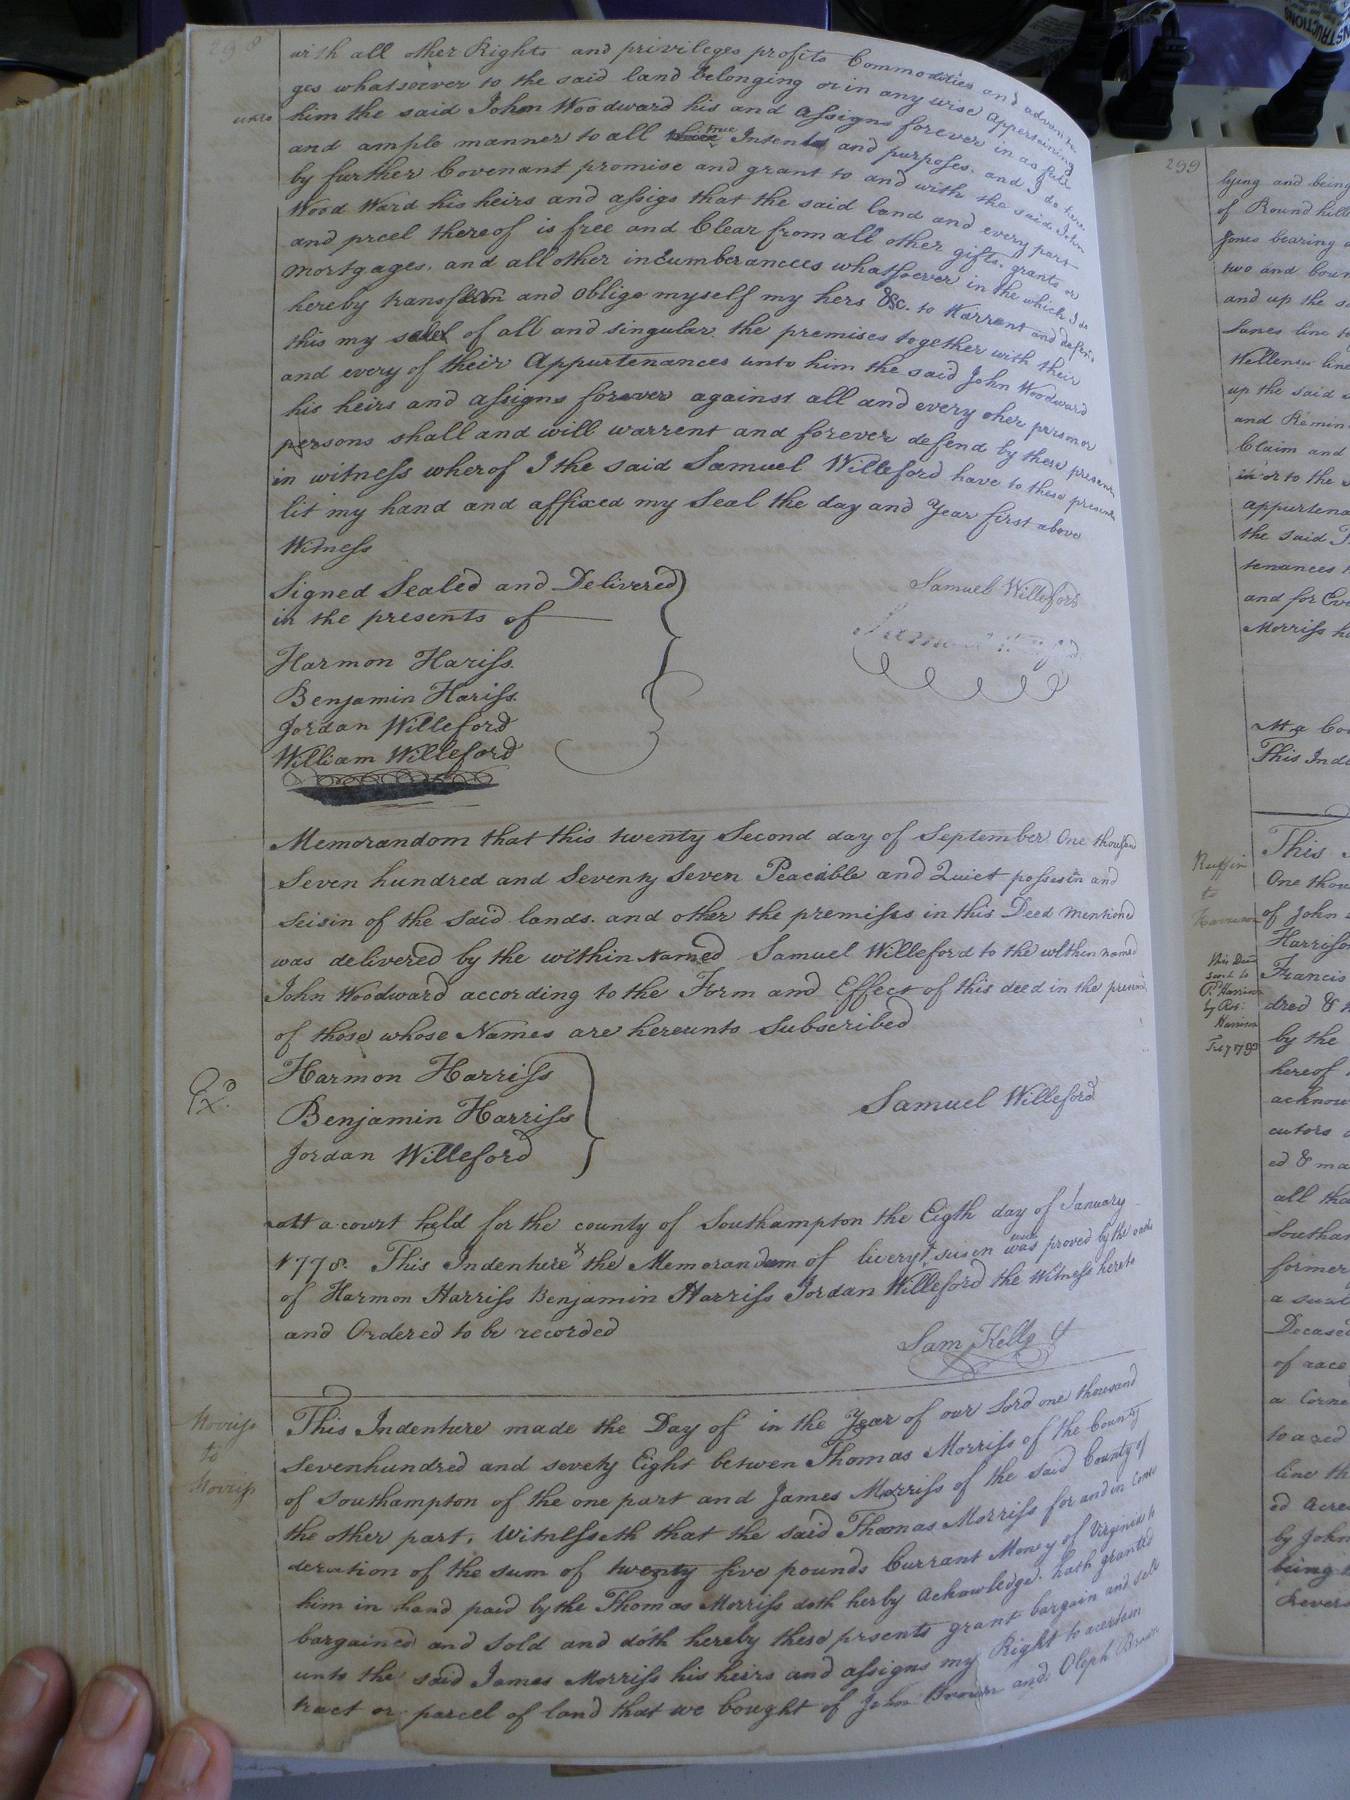 298
with all other Rights and privileges profits Commodities and advanta
ges whatsoever to the said land belonging or in any wise Appertaining
unto him the said John Woodward his and assigns forever in as full
and ample manner to all true Intents and purposes. and I do here
by further Covenant promise and grant to and with the said John
Wood Ward his heirs and assigs that the said land and every part
and prcel thereof is free and Clear from all other gifts. grants or
mortgages. and all other incumberancees whatsoever in the which I do
hereby and oblige myself my hers &c. to Warrent and defend
this my of all and singular the premises together with their
and every of their Appurtenances unto him the said John Woodward
his heirs and assigns forever against all and every oher person or
persons shall and will warrent and forever defend by these presents
in witness wherof I the said Samuel Willeford have to these presents
my hand and affixed my Seal the day and Year first above
Witness
Signed Sealed and Delivered
in the presents of
Samuel Willeford
Harmon Hariss.
Benjamin Hariss.
Jordan Willeford
William Willeford
Memorandom that this twenty Second day of September One thousand
Seven hundred and Seventy Seven Peacable and Quiet possestn and
Seisin of the Said lands. and other the premisses in this Deed mentioned
was delivered by the within Named Samuel Willeford to the within named
John Woodward according to the Form and Effect of this deed in the presen
of those whose Names are hereunto Subscribed
Harmon Harriss
Benjamin Harriss
Jordan Willeford
Samuel Willeford
Exd.
Att a court held for the county of Southampton the Eigth day of January
1778. This Indenture & the Memorandum of livery seisen was proved by the oaths
of Harmon Harriss Benjamin Harriss Jordan Willeford the Witness hereto
and Ordered to be recorded
Sam Kello
Morriss
to
Morriss
This Indenture made the Day of in the Year of our Lord one thousand
Sevenhundred and sevety Eight betwen Thomas Morriss of the County
of Southampton of the one part and James Morriss of the said County of
the other part. Witnesseth that the said Thomas Morriss for and in Consi
deration of the sum of twenty five pounds Currant Money of Virginia to
him in hand paid by the Thomas Morriss doth herby Acknowledge. hath granted
bargained and Sold and doth hereby these prsents grant bargain and sell
unto the said James Morriss his heirs and assigns my Right to a certain
tract or parcel of land that we bought of John Brown and Oleph
299
lying and being
of Round hill
Jones bearing
two and boun
and up the s
Lanes line
line
up the said
and Remin
Claim and
or to the
appurtena
the said
tenances
and for Eve
Morriss h
At a Cou
This Inde
Ruffin
to
Harrison
This Deed
sent to
Harrison
by
Harrison
This
One thou
of John
Harrison
Francis
dred &
by the
hereof
acknow
cutors
ed & ma
all tha
Southam
former
Deceased
of
a Corne
to a red
line th
ed Acre
by John
being
Revers